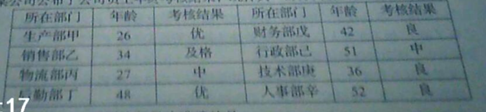 所在部门 年龄 考核结果 所在部门 年龄 考核结果
生产部甲 26 优 财务部戊 42 良
销售部乙 34 及格 行政部己 51 中
物流部丙 27 中 技术部庚 36 良
后勤部丁 48 优 人事部辛 52 良
:17